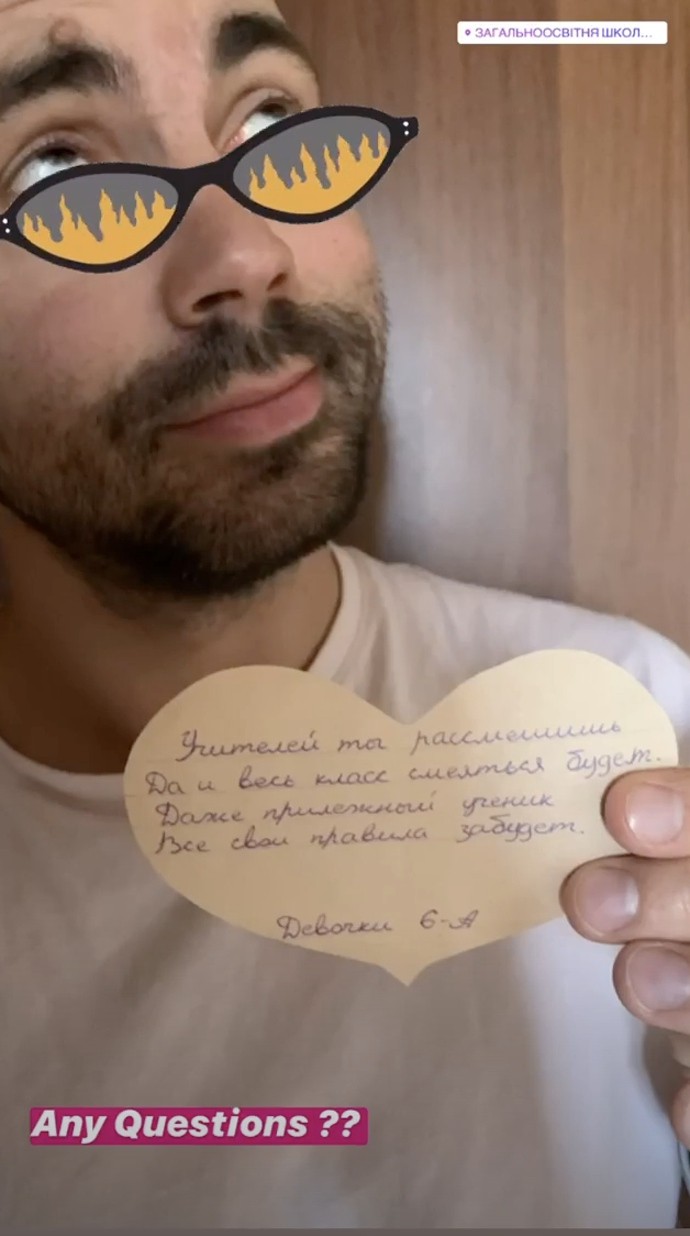 ЗАГАЛЬНООСВІТНЯ ШКОЛ...
Учителей ты рассмешишь
Да и весь класс смеяться будет.
Даже прилежный ученик
Все свои правила забудет.
Девочки 6-А
Any Questions ??